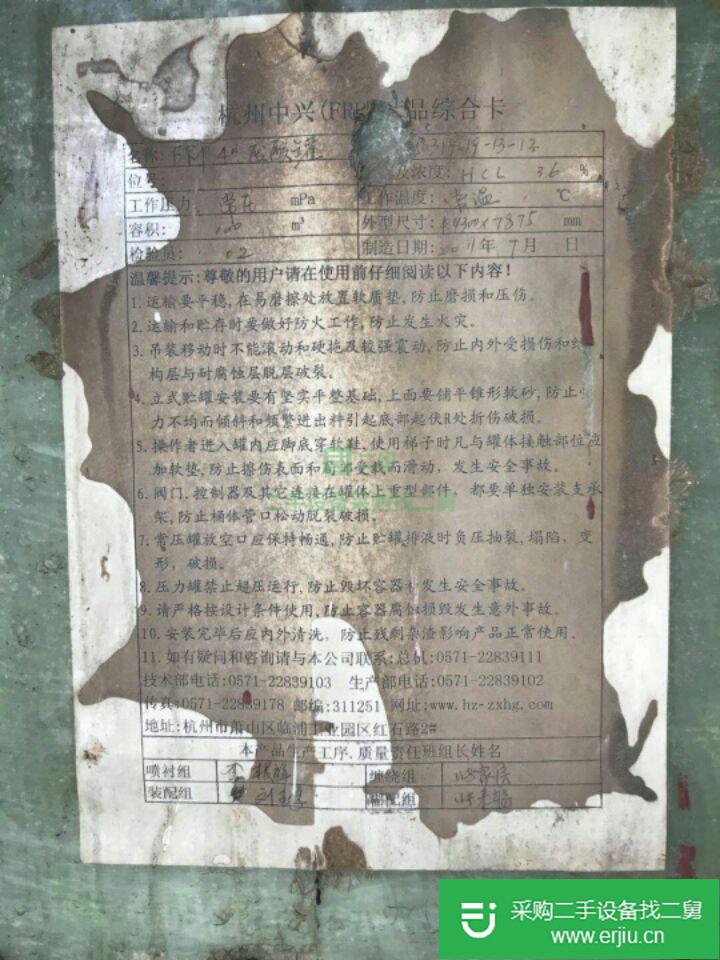 杭州中兴(FRP 品综合卡
名称:
位号 及浓度: HCL 36 %
工作压力: 常压 mPa 工作温度: 常温 ℃
容积: m³ 外型尺寸: 4300×7875 mm
检验员: 02 制造日期: 2011年 7月 日
温馨提示:尊敬的用户请在使用前仔细阅读以下内容!
1.运输要平稳,在易磨擦处放置软质垫,防止磨损和压伤。
2.运输和贮存时要做好防火工作,防止发生火灾。
3.吊装移动时不能滚动和硬拖及较强震动,防止内外受损伤和
构层与耐腐蚀层脱层破裂。
4.立式贮罐安装要有坚实平整基础,上面要铺平锥形软砂,防止
力不均而倾斜和频繁进出料引起底部起伏R处折伤破损。
5.操作者进入罐内应脚底穿软鞋,使用梯子时凡与罐体接触部位应
加软垫,防止擦伤表面和局部受载而滑动,发生安全事故。
6.阀门.控制器及其它连接在罐体上重型部件,都要单独安装支承
架,防止桶体管口松动脱裂破损。
7.常压罐放空口应保持畅通,防止贮罐排液时负压抽裂,塌陷、变
形,破损。
8.压力罐禁止超压运行,防止毁坏容器和发生安全事故。
9.请严格按设计条件使用,防止容器腐蚀损毁发生意外事故。
10.安装完毕后应内外清洗,防止残剩杂渣影响产品正常使用.
11.如有疑问和咨询请与本公司联系:总机:0571-22839111
技术部电话:0571-22839103 生产部电话:0571-22839102
传真:0571-22839178 邮编:311251 网址:www.hz-zxhg.com
地址:杭州市萧山区临浦工业园区红石路2#
本产品生产工序.质量责任班组长姓名
喷衬组 缠绕组
装配组 糊配组
采购二手设备找二舅
www.erjiu.cn